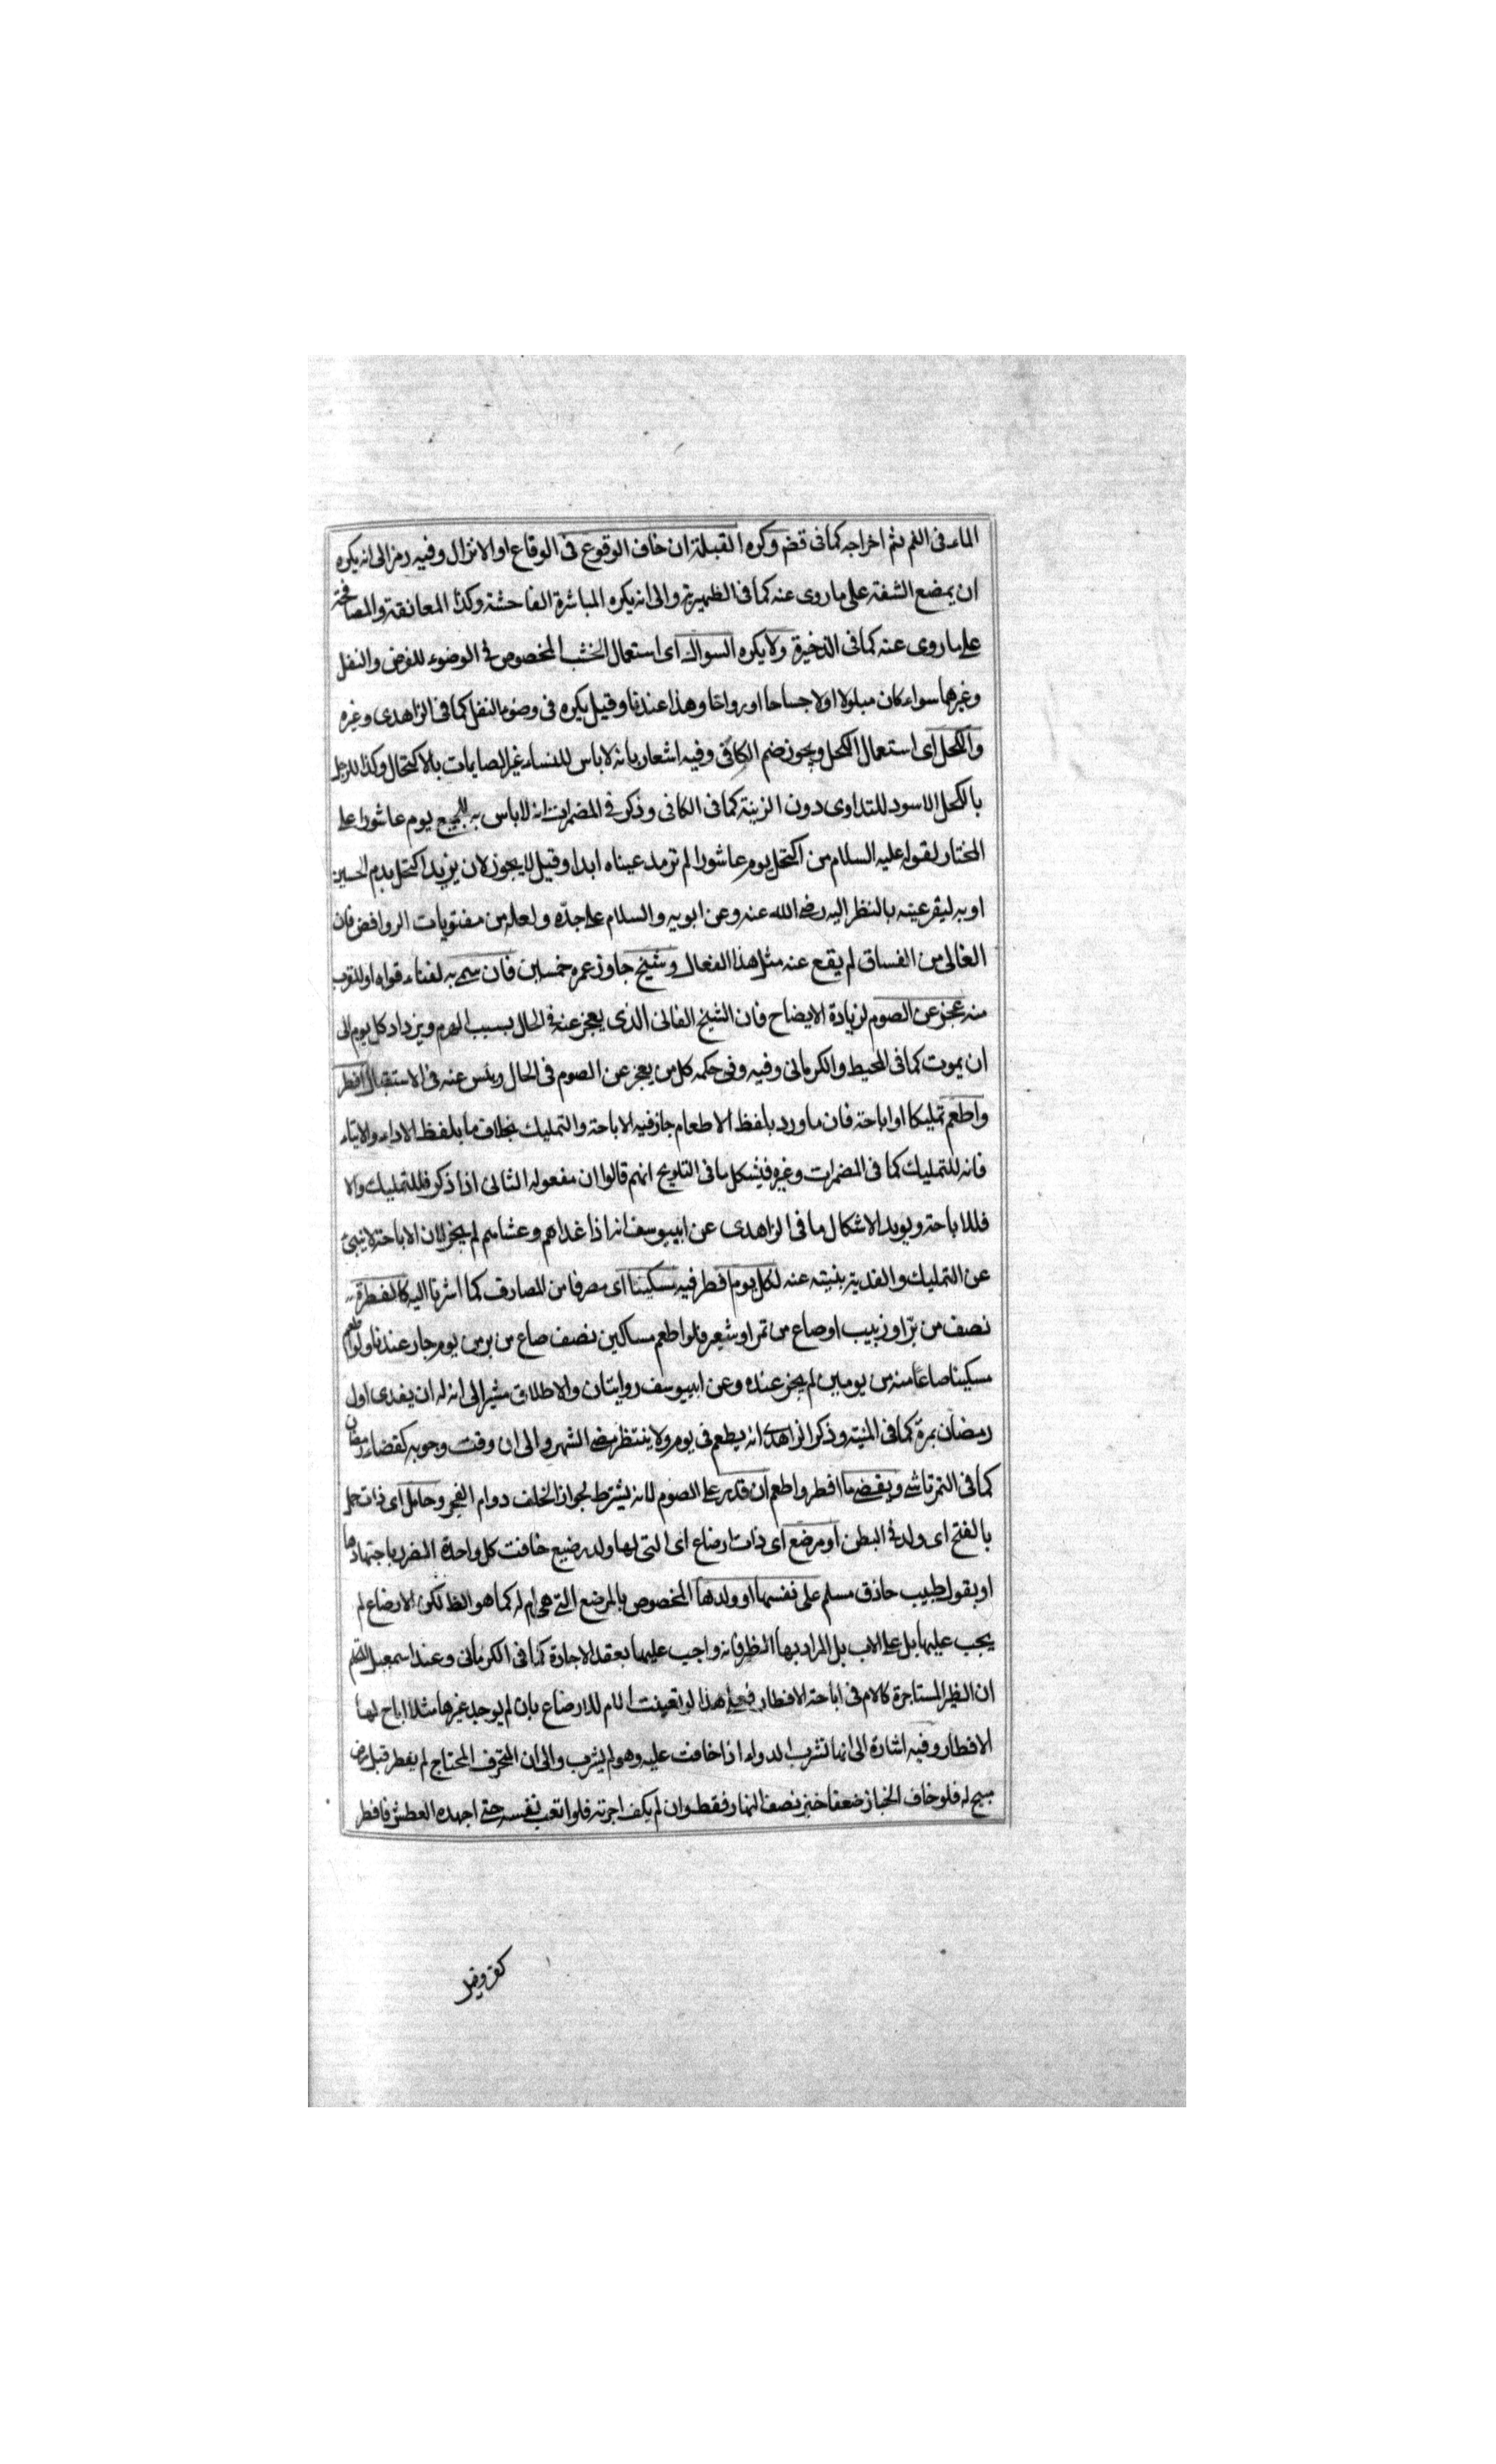 الماء فى الفم ثم اخراجه كما فى قضم وكره القبلة ان خاف الوقوع فى الوقاع او الانزال وفيه رمز الى انه يكره
ان يمضع الشفة على ما روى عنه كما فى الظهيرية والى انه يكره المباشرة الفاحشة وكذا المعانقة والمصافحة
على ما روى عنه كما فى الذخيرة ولا يكره السواك اى استعمال الخشب المخصوص فى الوضوء للفرض والنفل
وغيرهما سواء كان مبلولا اولا جساحا او رواحا وهذا عندنا وقيل يكره فى وضوء النفل كما فى الزاهدى وغيره
والكحل اى استعمال الكحل ويجوز ضم الكافى وفيه اشعار بانه لا باس للنساء غير الصايمات بالاكتحال وكذا للرجل
بالكحل الاسود للتداوى دون الزينة كما فى الكافى وذكر فى المضمرات انه لا باس به للجميع يوم عاشورا على
المختار لقوله عليه السلام من اكتحل يوم عاشورا لم ترمد عيناه ابدا وقيل لا يجوز لان يزيد اكتحل بدم الحسين
او به ليقر عينه بالنظر اليه رضى الله عنه وعن ابويه والسلام على جده ولعله من مفتريات الروافض فان
الغالى من الفساق لم يقع عنه مثل هذا الفعال وشيخ جاوز عمره خمسين فان سمى به لفناء قواه او للقرب
منه عجز عن الصوم لزيادة الايضاح فان الشيخ الفانى الذى يعجز عنه فى الحال بسبب الهرم ويزداد كل يوم الى
ان يموت كما فى المحيط والكرمانى وفيه وفى حكمه كل من يعجز عن الصوم فى الحال ويئس عنه فى الاستقبال افطر
واطعم تمليكا او اباحة فان ما ورد بلفظ الاطعام جاز فيه الاباحة والتمليك بخلاف ما بلفظ الاداء والايتاء
فانه للتمليك كما فى المضمرات وغيره فيشكل ما فى التلويح انهم قالوا ان مفعوله الثانى اذا ذكر فللتمليك والا
فللاباحة ويويد الاشكال ما فى الزاهدى عن ابييوسف انه اذا غداهم وعشاهم لم يجز لان الاباحة لا تنبئ
عن التمليك والفدية بنيته عنه لكل يوم افطر فيه مسكينا اى مصرفا من المصارف كما اشرنا اليه كالفطرة
نصف من بر او زبيب او صاع من تمر او شعير فلو اطعم مساكين نصف صاع من بر من يوم جاز عندنا ولو اطعم
مسكينا صاعا منه من يومين لم يجز عنده وعن ابييوسف روايتان والاطلاق مشير الى انه له ان يفدى اول
رمضان بمرة كما فى المنية وذكر الزاهدى انه يطعم فى يوم ولا ينتظر مضى الشهر والى ان وقت وجوبه كقضاء رمضان
كما فى التمرتاشى ويقضى ما افطر واطعم ان قدر على الصوم لانه يشترط لجواز الخلف دوام العجز وحامل اى ذات حمل
بالفتح اى ولد فى البطن او مرضع اى ذات ارضاع اى التى لها ولد رضيع خافت كل واحدة الضرر باجتهادها
او بقول طبيب حاذق مسلم على نفسها او ولدها المخصوص بالمرضع التى هى ام له كما هو الظ لكن الارضاع لم
يجب عليها بل على الاب بل المراد بها الظئر فانه واجب عليها بعقد الاجارة كما فى الكرمانى وعند اسمعيل المتكلم
ان الظئر المستاجرة كالام فى اباحة الافطار فعلى هذا لو تعينت الام للارضاع بان لم يوجد غيرها مثلا اباح لها
الافطار وفيه اشارة الى انها تشرب الدواء اذا خافت عليه وهو لم يشرب والى ان المحترف المحتاج لم يفطر قبل مرض
مبيح له فلو خاف الخباز ضعفا خبز نصف النهار فقط وان لم يكف اجرته فلو اتعب نفسه حتى اجهده العطش فافطر
كفر وقيل